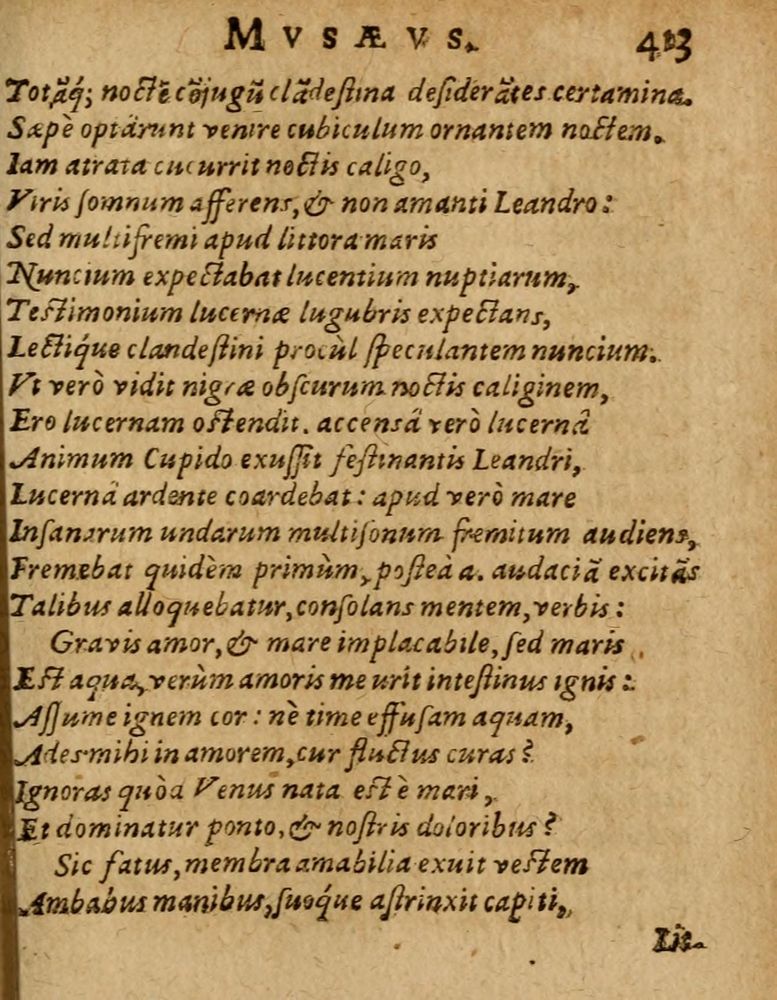 MVSÆVS. 413
Totāq́; noctē cōjugū clādestina desiderātes certamina.
Sæpè optârunt venire cubiculum ornantem noctem.
Iam atrata cucurrit noctis caligo,
Viris somnum afferens, & non amanti Leandro:
Sed multifremi apud littora maris
Nuncium expectabat lucentium nuptiarum,
Testimonium lucernæ lugubris expectans,
Lectiq́ue clandestini procùl speculantem nuncium.
Vt verò vidit nigræ obscurum noctis caliginem,
Ero lucernam ostendit. accensâ verò lucernâ
Animum Cupido exussit festinantis Leandri,
Lucernâ ardente coardebat: apud verò mare
Insanarum undarum multisonum fremitum audiens,
Fremebat quidèm primùm, posteà a. audaciā excitās
Talibus alloquebatur, consolans mentem, verbis:
Gravis amor, & mare implacabile, sed maris
Est aqua, verùm amoris me urit intestinus ignis:
Assume ignem cor: nè time effusam aquam,
Ades mihi in amorem, cur fluctus curas?
Ignoras quòd Venus nata est è mari,
Et dominatur ponto, & nostris doloribus?
Sic fatus, membra amabilia exuit vestem
Ambabus manibus, suoq́ue astrinxit capiti,